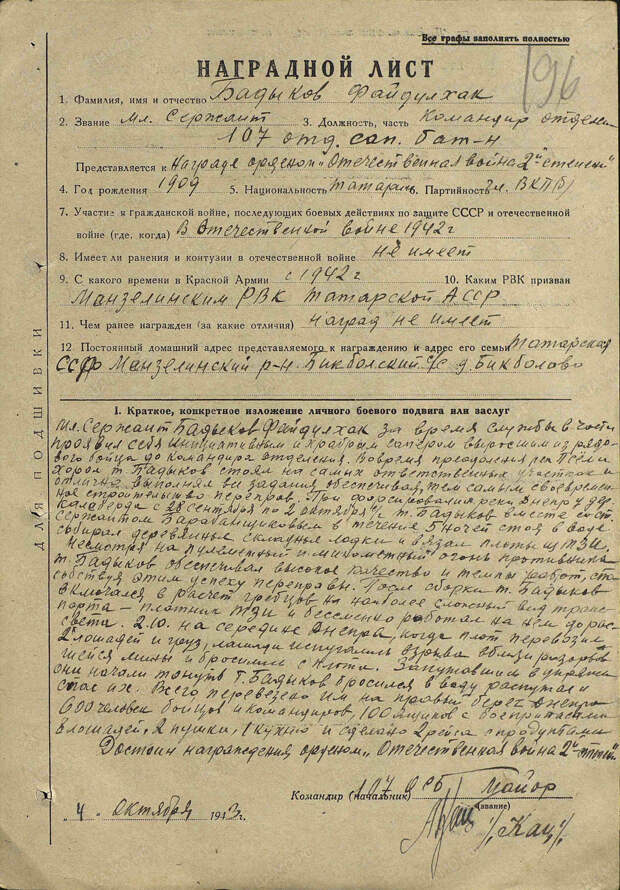 Все графы заполнять полностью
196
НАГРАДНОЙ ЛИСТ
1. Фамилия, имя и отчество Бадыков Файдулхак
2. Звание Мл. Сержант 3. Должность, часть Командир отделен
107 отд. сап. бат-н
Представляется к Награде орденом "Отечественная война 2й степени"
4. Год рождения 1909 5. Национальность татарин 6. Партийность чл. ВКП(б)
7. Участие в гражданской войне, последующих боевых действиях по защите СССР и отечественной
войне (где, когда) В Отечественной войне 1942 г
8. Имеет ли ранения и контузии в отечественной войне не имеет
9. С какого времени в Красной Армии с 1942 г 10. Каким РВК призван
Манзелинским РВК Татарской АССР
11. Чем ранее награжден (за какие отличия) наград не имеет
12 Постоянный домашний адрес представляемого к награждению и адрес его семьи Татарская
ССР Манзелинский р-н. Бикболский с/с д. Бикболово
ДЛЯ ПОДШИВКИ
I. Краткое, конкретное изложение личного боевого подвига или заслуг
Мл. Сержант Бадыков Файдулхак за время службы в части
проявил себя инициативным и храбрым сапером выросшим из рядо-
вого бойца до командира отделения. Вовремя преодоления рек Псел и
Хорол т. Бадыков стоял на самых ответственных участках и
отлично выполнял все задания обеспечивая тем самым своевремен-
ное строительство переправ. При форсировании реки Днепр у дер.
с 28 сентября по 2 октября т. Бадыков вместе с ст.
Сержантом Барабанщиковым в течении 5 ночей стоя в воде
собирал деревянные складные лодки и вязал плоты из ТЗИ.
Несмотря на пулеметный и минометный огонь противника
т. Бадыков обеспечивал высокое качество и темпы работ, спо-
собствуя этим успеху переправы. После сборки т. Бадыков
включался в расчет гребцов на наиболее сложный вид транс-
порта – плотик ТЗИ и бессменно работал на нем до рас-
света. 2.10. на середине Днепра, когда плот перевозил
2 лошадей и груз, лошади испугались взрыва вблизи разорвав-
шейся мины и бросились с плота. Запутавшись в упряжи
они начали тонуть т. Бадыков бросился в воду распутал и
спас их. Всего перевезено им на правый берег Днепра
600 человек бойцов и командиров, 100 ящиков с боеприпасами
лошадей, 2 пушки, 1 кухню и сделано 2 рейса с продуктами
Достоин награждения орденом "Отечественная война 2й степени"
Командир (начальник) 107 Майор
(звание)
/Кац/
"4" октября 1943 г.